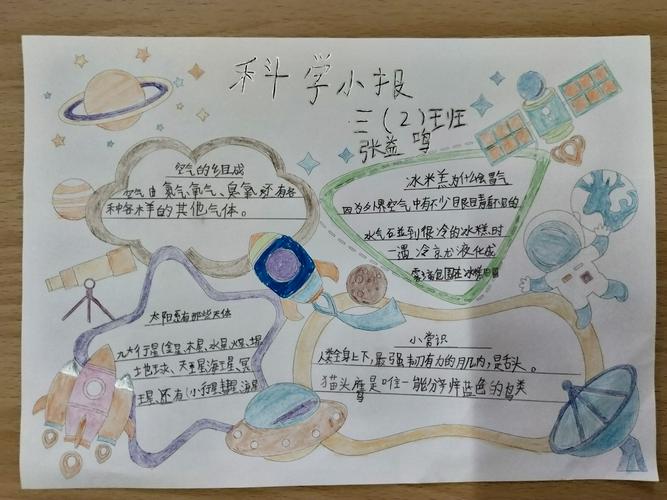 科学小报
三(2)班
张益鸣
空气的组成
空气由氮气氧气、臭氧还有各
种各样的其他气体。
冰米羔为什么会冒气
因为外界空气中有不少目艮目青看不见的
水气石並到很冷的冰糕时
一遇冷京尤液化成
太阳系有那些天体
九大行星(金星、木星、水星、火星、
土地球、天王星海王星、冥
王星、还有(小行星彗星、
小常识
人类全身上下,最强韧有力的月几肉,是舌头。
猫头鹰是唯一能分辛辟蓝色的鸟类